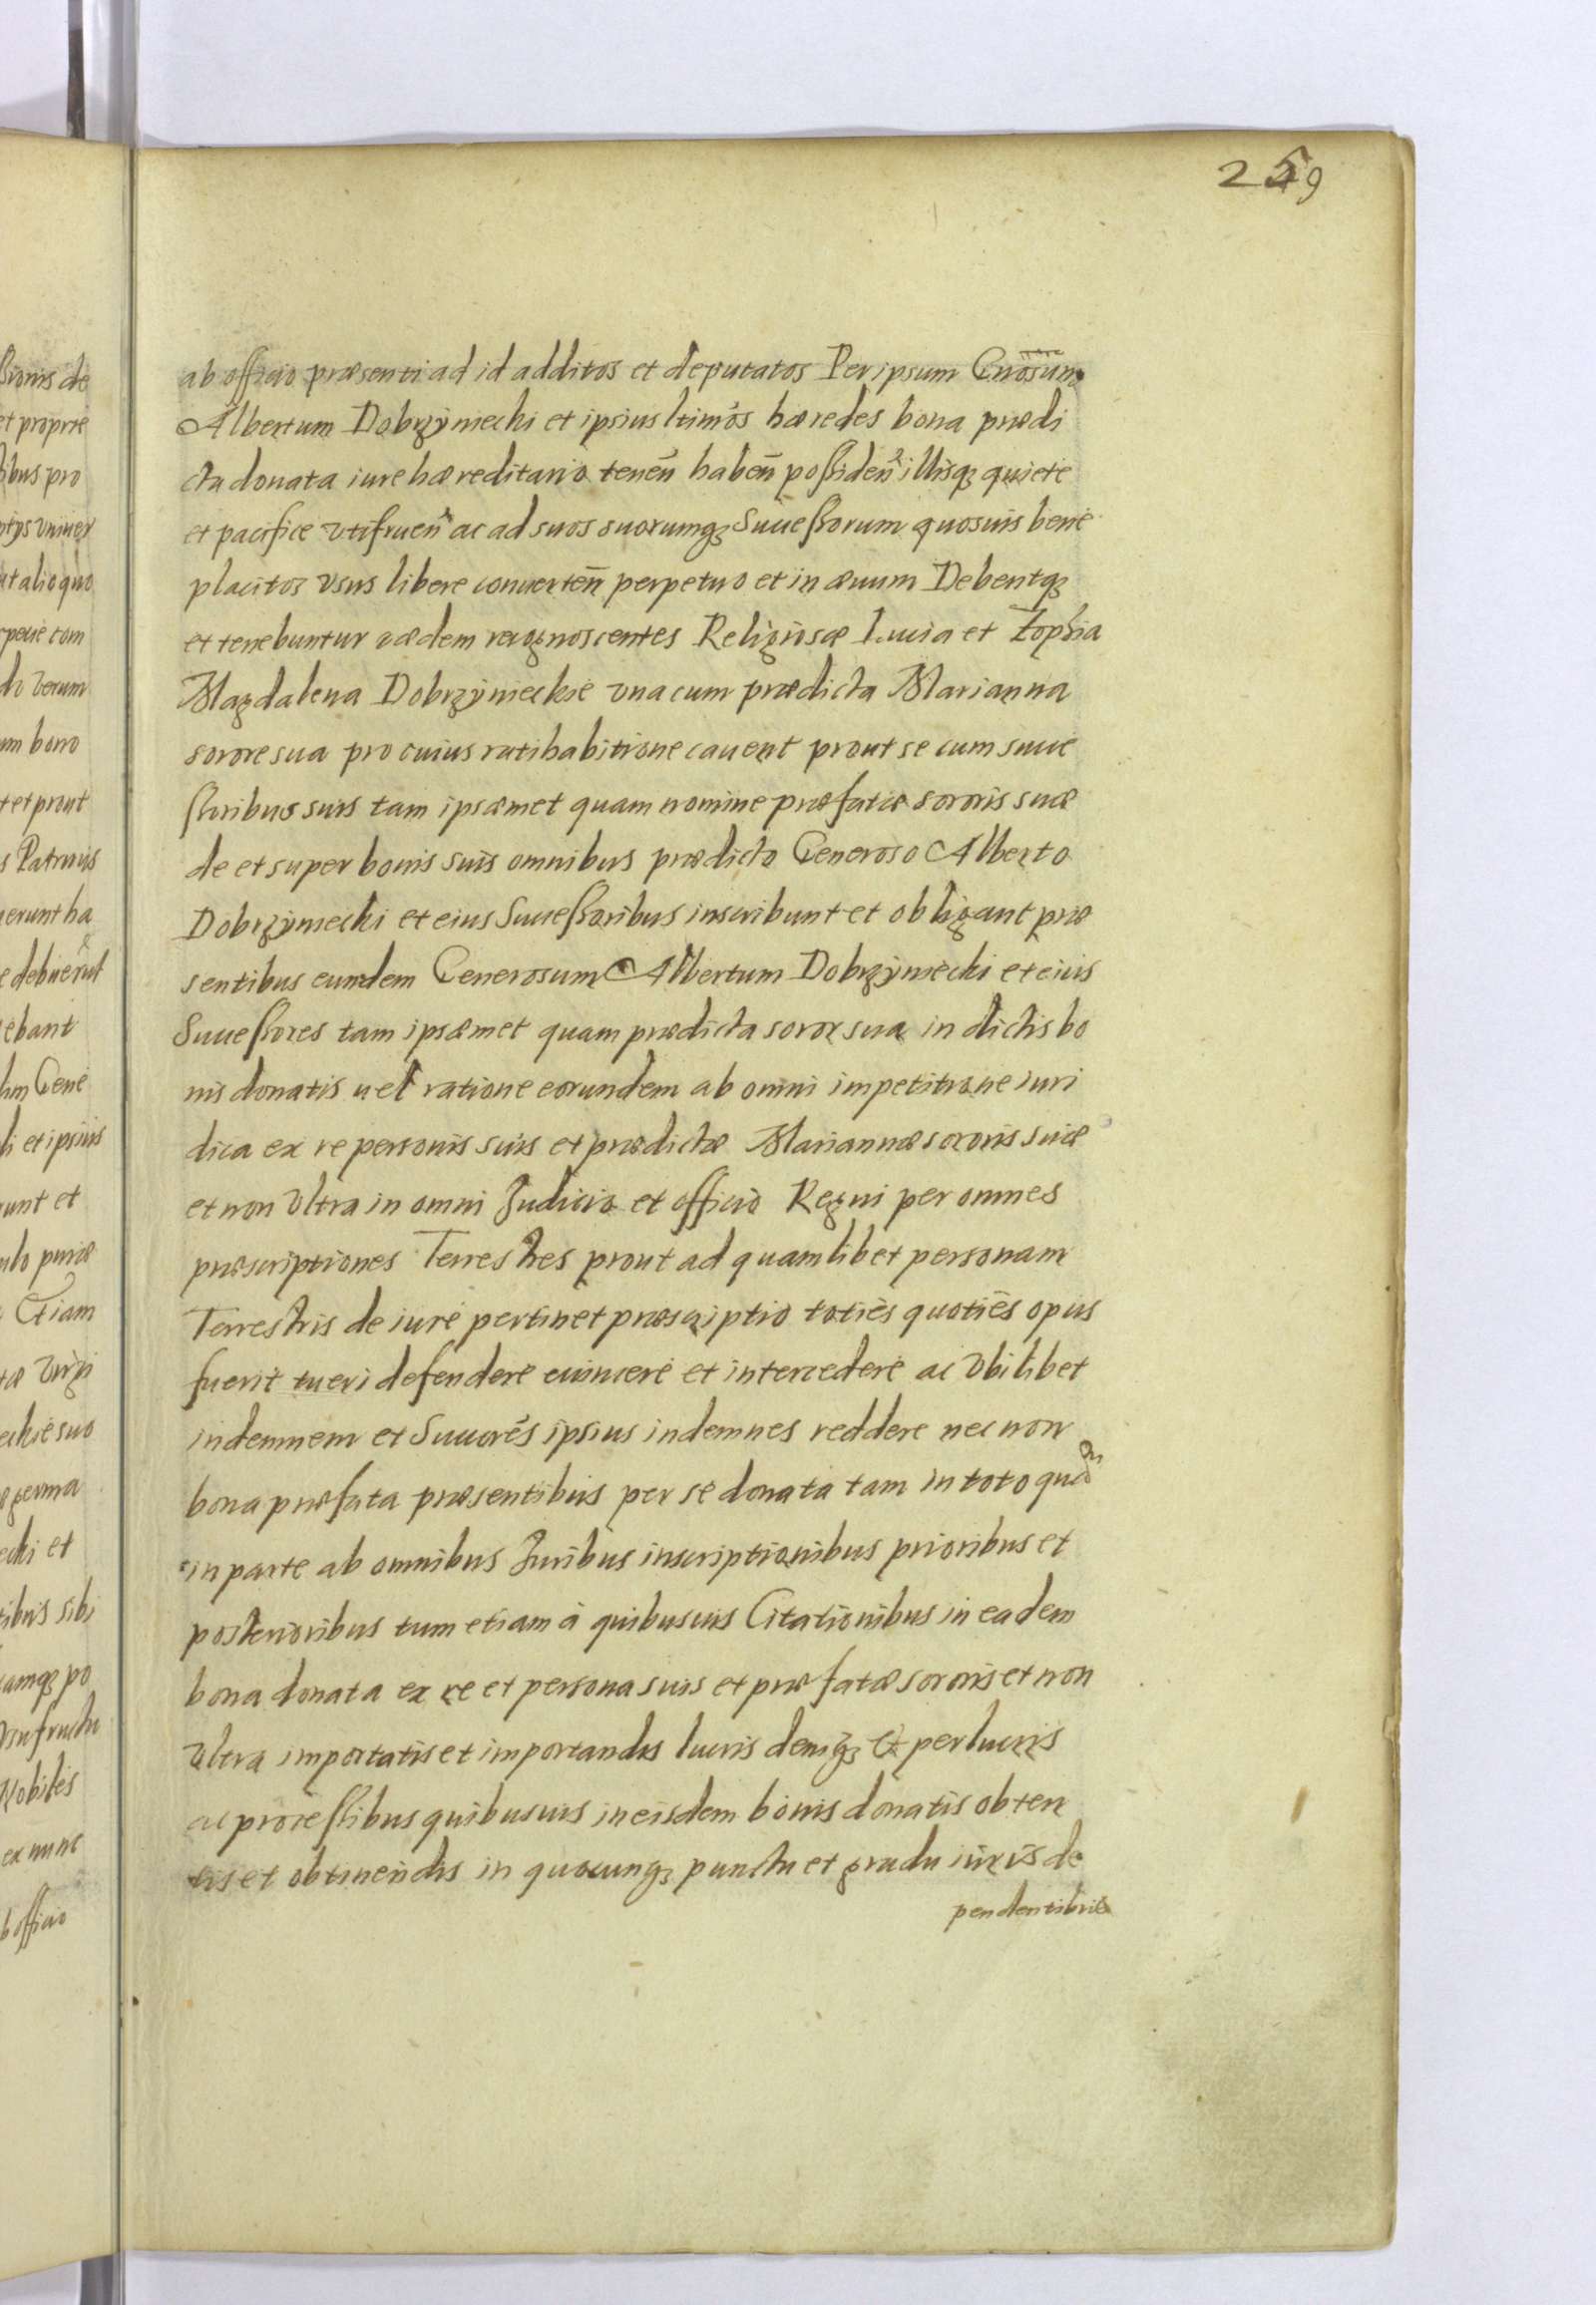 259
ab officio præsenti ad id additos et deputatos Per ipsum Gnōsum
Albertum Dobrzyniecki et ipsius ltimos hæredes bona prædi
cta donata iure hæreditario tenen̄ haben̄ possiden̄ illisq; quiete
et pacifice vtifruen̄ ac ad suos suorumq; Successorum quosuis bene
placitos vsus libere conuerten̄ perpetuo et in æuum Debentq;
et tenebuntur eædem recognoscentes Religiosæ Lucia et Zophia
Magdalena Dobrzynieckie vna cum prædicta Marianna
sorore sua pro cuius ratihabitione cauent prout se cum succe
ssoribus suis tam ipsæmet quam nomine præfatæ sororis suæ
de et super bonis suis omnibus prædicto Generoso Alberto
Dobrzyniecki et eius Successoribus inscribunt et obligant præ
sentibus eundem Generosum Albertum Dobrzyniecki et eius
Successores tam ipsæmet quam prædicta soror sua in dictis bo
nis donatis uel ratione eorundem ab omni impetitione iuri
dica ex re personis suis et prædictæ Mariannæ sororis suæ
et non vltra in omni Judicio et officio Regni per omnes
præscriptiones Terrestres prout ad quamlibet personam
Terrestris de iure pertinet præscriptio toties quoties opus
fuerit tueri defendere euincere et intercedere ac vbilibet
indemnem et Succores ipsius indemnes reddere nec non
bona præfata præsentibus per se donata tam in toto quam
in parte ab omnibus Juribus inscriptionibus prioribus et
posterioribus tum etiam à quibusuis Citationibus in eadem
bona donata ex re et persona suis et præfatæ sororis et non
vltra importatis et importandis lucris deniq; et perlucris
ac processibus quibusuis in eisdem bonis donatis obten
tis et obtinendis in quocunq; punctu et gradu iuris de
pendentibus
ssionis de
et proprie
ibus pro
vniuer
alio quo
com
verum
bono
et prout
Patruis
erunt ha
debuerūt
ebant
Gene
et ipsius
unt et
Etiam
virgi
suo
germa
ecki et
sibi
po
Nobiles
ex nunc
officio